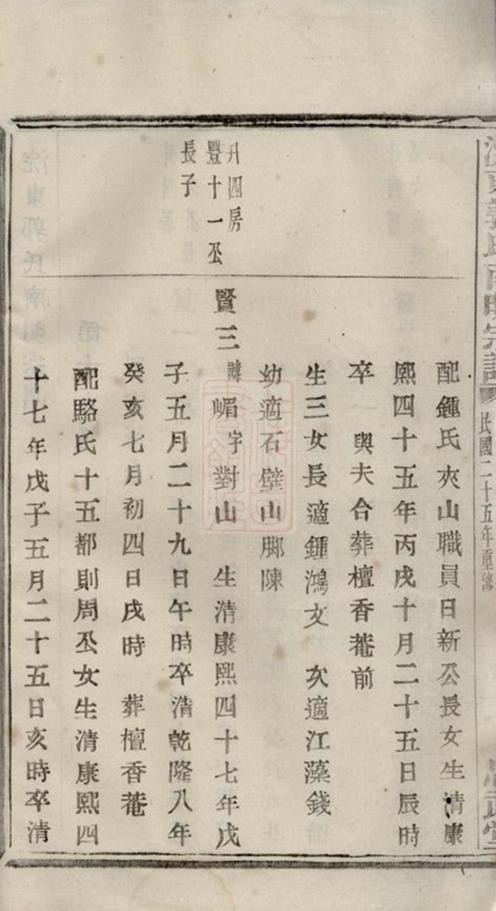 民國二十五年重修
配鍾氏夾山職員日新公長女生清康
熙四十五年丙戌十月二十五日辰時
卒 與夫合葬檀香菴前
生三女長適鍾鴻文 次適江藻錢
幼適石壁山腳陳
升四房
豐十一公
長子
賢三諱嵋字對山 生清康熙四十七年戊
子五月二十九日午時卒清乾隆八年
癸亥七月初四日戌時 葬檀香菴
配駱氏十五都則周公女生清康熙四
十七年戊子五月二十五日亥時卒清